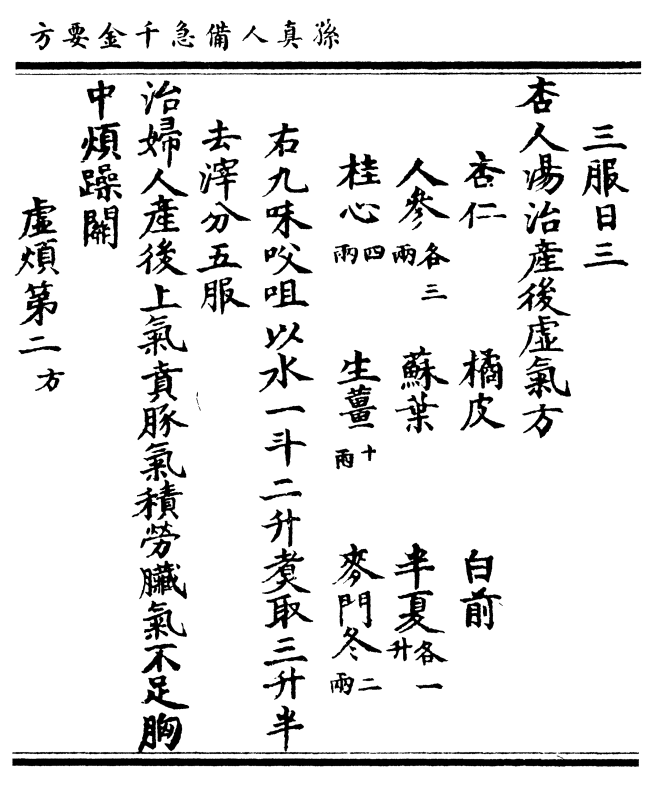 孫真人備急千金要方
三服日三
杏人湯治產後虛氣方
杏仁 橘皮 白前
人參各三兩 蘇葉 半夏各一升
桂心四兩 生薑十兩 麥門冬二兩
右九味㕮咀以水一斗二升煑取三升半
去滓分五服
治婦人產後上氣賁豚氣積勞臟氣不足胸
中煩躁關
虛煩第二 方